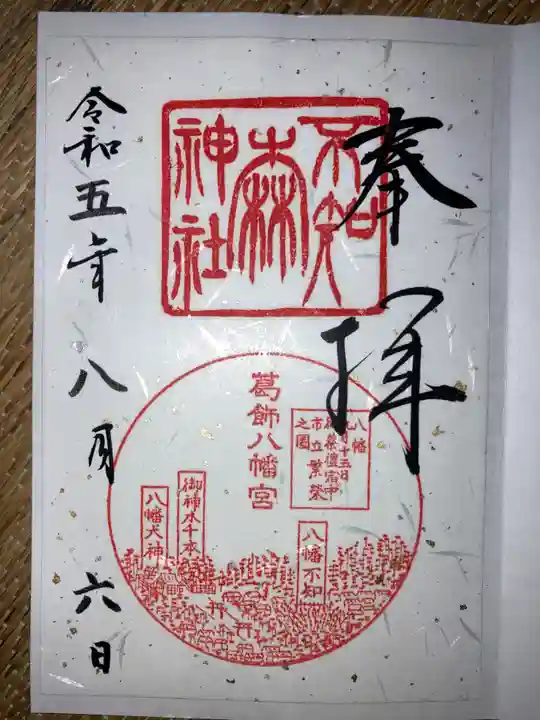 奉拝
不知森神社
葛飾八幡宮
八幡
市立繁栄
之図
御神木千本
八幡不知
令和五年八月六日